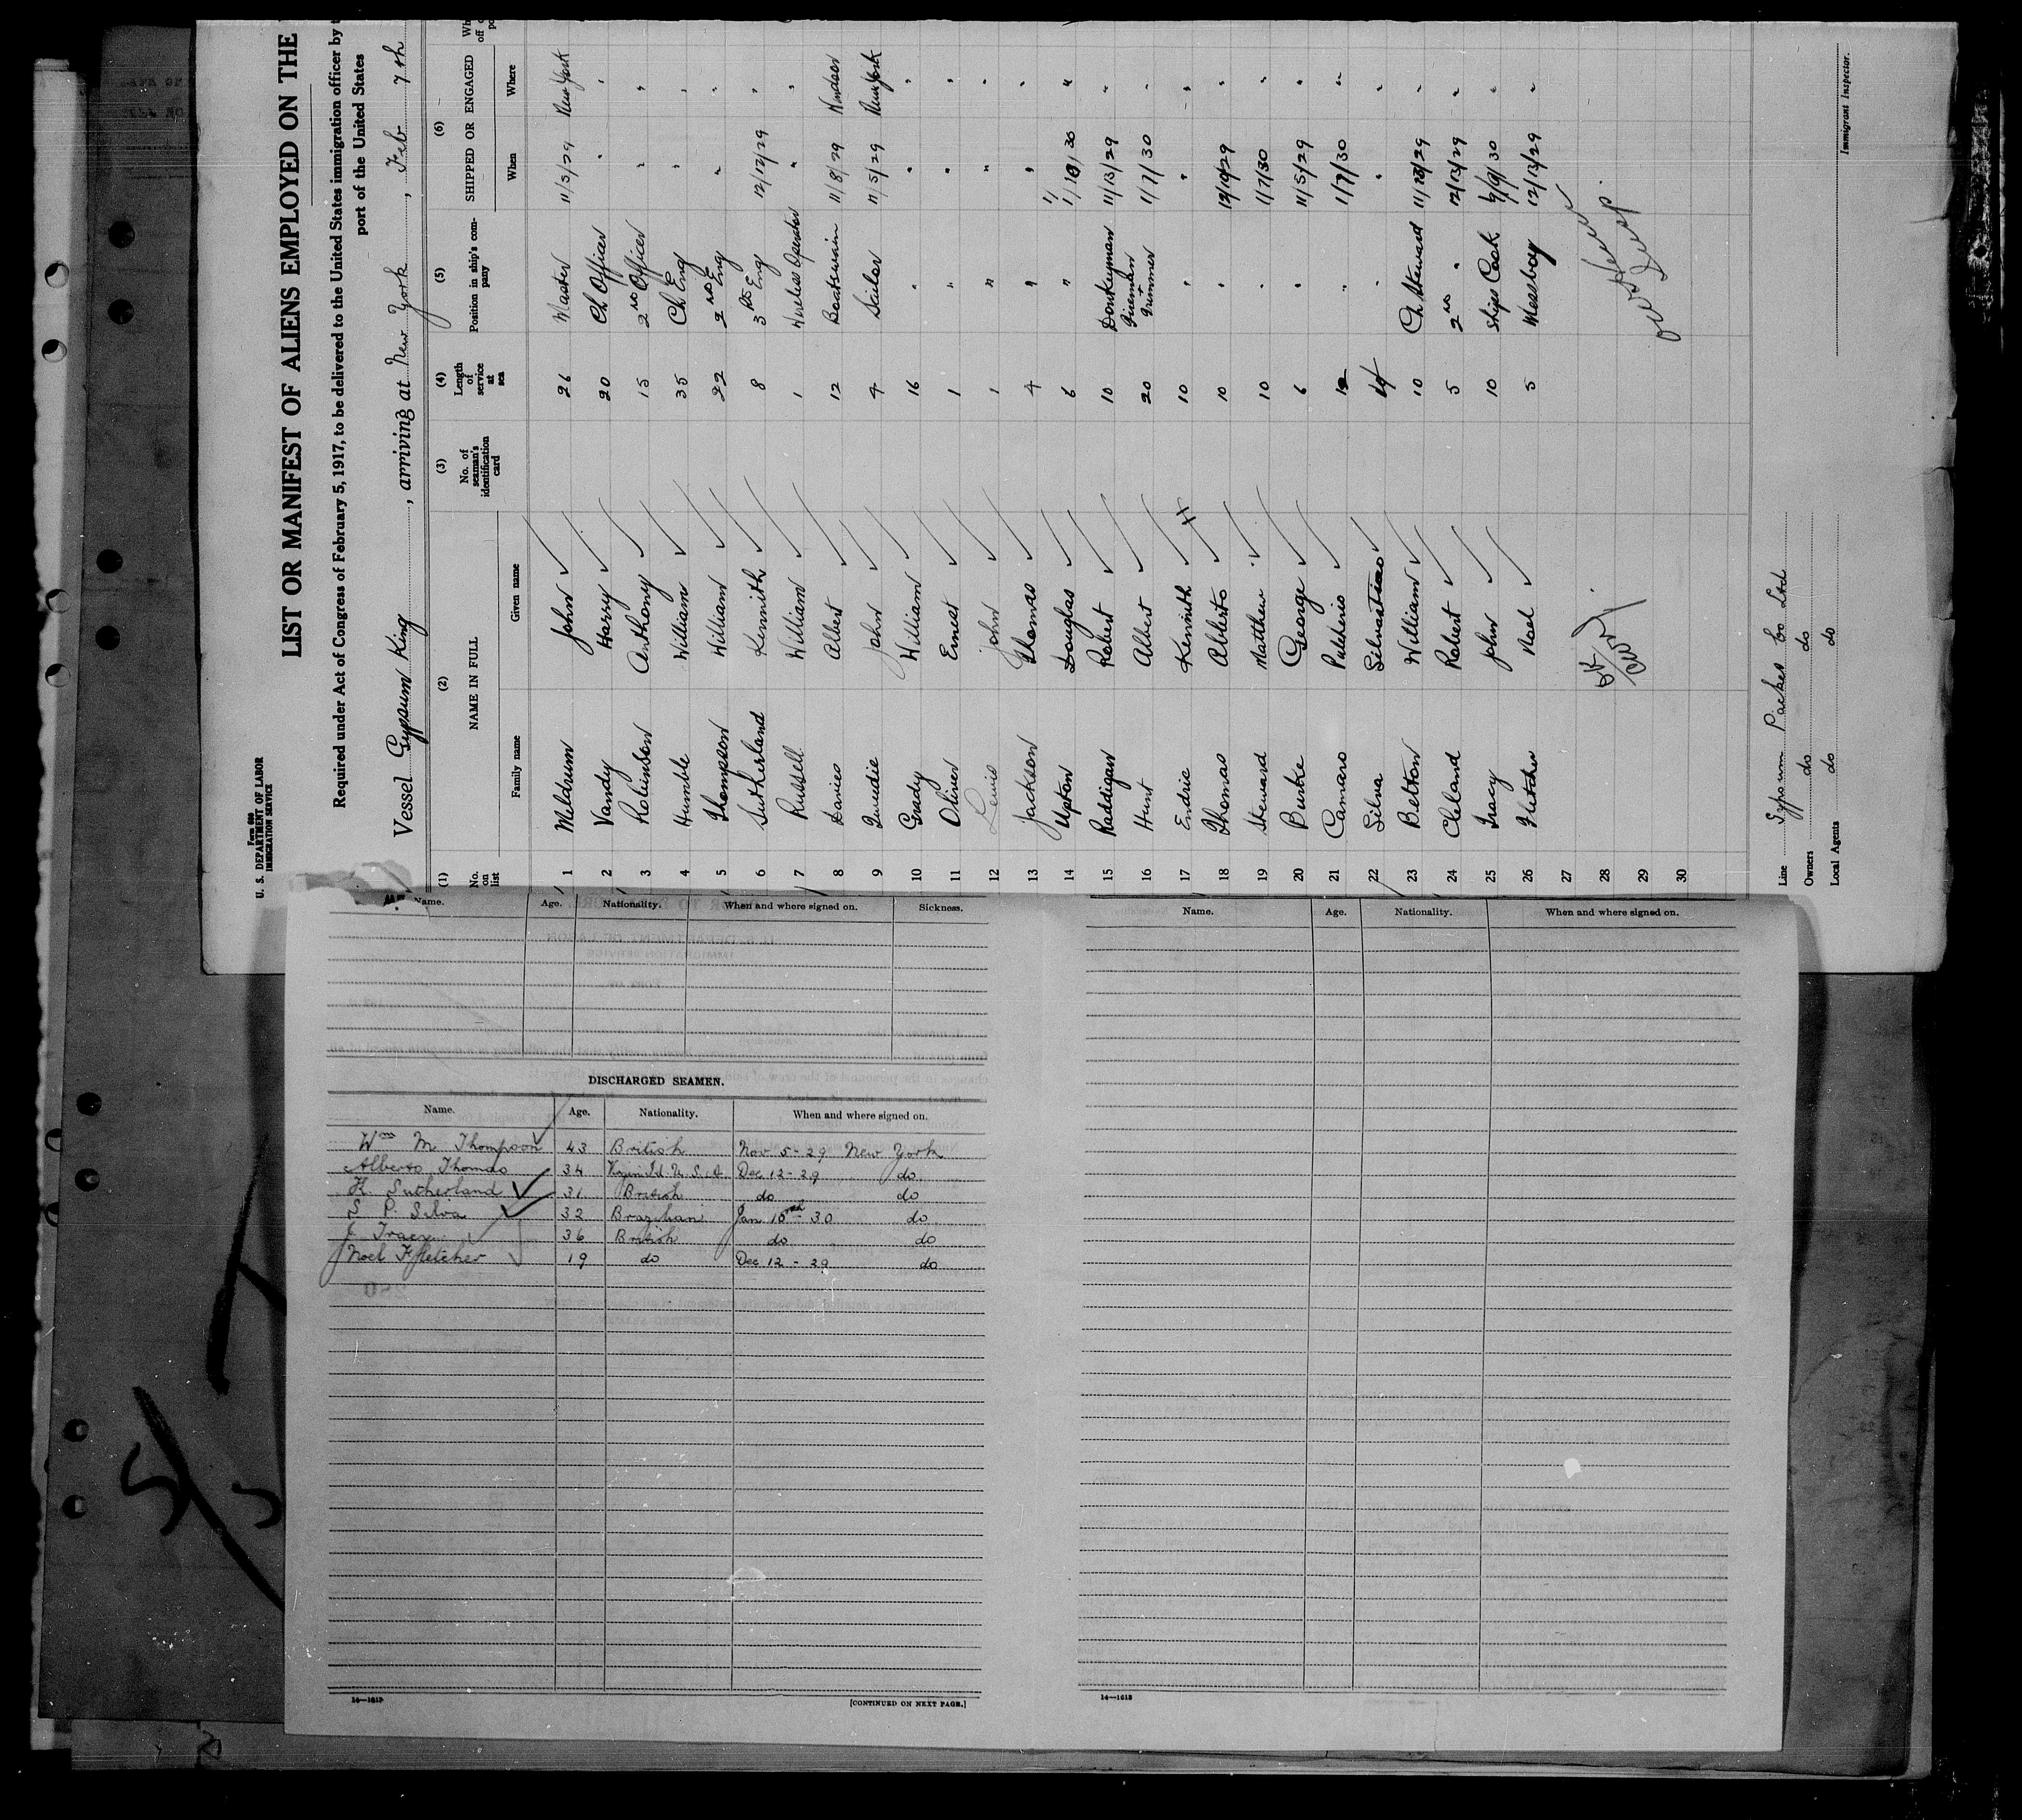 Form 689
U. S. DEPARTMENT OF LABOR
IMMIGRATION SERVICE
LIST OR MANIFEST OF ALIENS EMPLOYED ON THE
Required under Act of Congress of February 5, 1917, to be delivered to the United States immigration officer by
port of the United States
Vessel Gypsum King, arriving at New York, Feb 7th
(1) (2) (3) (4) (5) (6)
No. on list NAME IN FULL No. of seaman's identification card Length of service at sea Position in ship's company SHIPPED OR ENGAGED
Family name Given name When Where
1 Meldrum John 26 Master 11/5/29 New York
2 Vandy Harry 20 Ch Officer " "
3 Robinson Anthony 15 2nd Officer " "
4 Humble William 35 Ch Eng " "
5 Thompson William 22 2nd Eng " "
6 Sutherland Kennith 8 3rd Eng 12/12/29 "
7 Russell William 1 Wireless Operator " "
8 Davies Albert 12 Boatswain 11/8/29 Windsor
9 Tweedie John 4 Sailor 11/5/29 New York
10 Grady William 16 " " "
11 Oliver Ernest 1 " " "
12 Lewis John 1 " " "
13 Jackson Thomas 4 " " "
14 Upton Douglas 6 " 1/10/30 "
15 Raddigan Robert 10 Donkeyman 11/13/29 "
16 Hunt Albert 20 Fireman + Trimmer 1/7/30 "
17 Endric Kennith 10 " " "
18 Thomas Alberto 10 " 12/12/29 "
19 Steward Matthew 10 " 1/7/30 "
20 Burke George 6 " 11/5/29 "
21 Camaro 12 " 1/7/30 "
22 Silva 14 " " "
23 Belton William 10 Ch Steward 11/13/29 "
24 Cleland Robert 5 2nd " 12/13/29 "
25 Tracy John 10 Ships Cook 1/9/30 "
26 Fletcher Noel 5 Messboy 12/13/29 "
27
28
29
30
Line Gypsum Packet Co Ltd
Owners do do
Local Agents do do
Immigrant Inspector.
Name. Age. Nationality. When and where signed on. Sickness.
DISCHARGED SEAMEN.
Name. Age. Nationality. When and where signed on.
Wm M Thompson 43 British Nov 5-29 New York
Alberto Thomas 34 Virgin Id. U. S. A. Dec 12-29 do
K. Sutherland 31 British do do
S P. Silva 32 Brazilian Jan 10th 30 do
J Tracy 36 British do do
Noel Fletcher 19 do Dec 12-29 do
14—1613 [CONTINUED ON NEXT PAGE.]
Name. Age. Nationality. When and where signed on.
14—1613